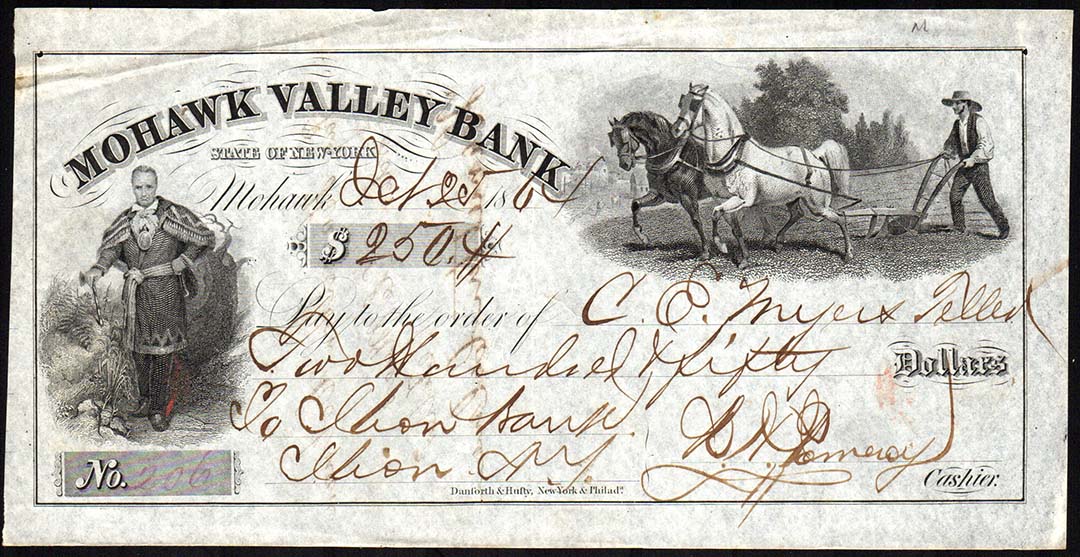 M
MOHAWK VALLEY BANK
STATE OF NEW-YORK
Mohawk Oct 25 1864
$ 250.
Pay to the order of C. E. Myers Teller
Two Hundred & fifty Dollars
To Ilion Bank
Ilion N.Y.
Pomeroy
Cashier.
No. 206
Danforth & Hufty, New York & Philad?